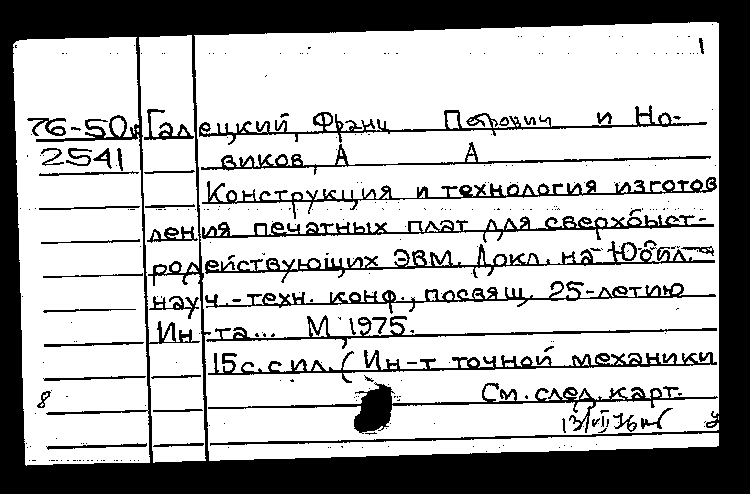 1
76-50 Галецкий, Франц Петрович и Но-
2541 виков, А А
Конструкция и технология изготов
ления печатных плат для сверхбыст-
родействующих ЭВМ. Докл. на Юбил.
науч.-техн. конф., посвящ. 25-летию
Ин-та... М, 1975.
15 с. с ил. (Ин-т точной механики
8 См. след. карт.